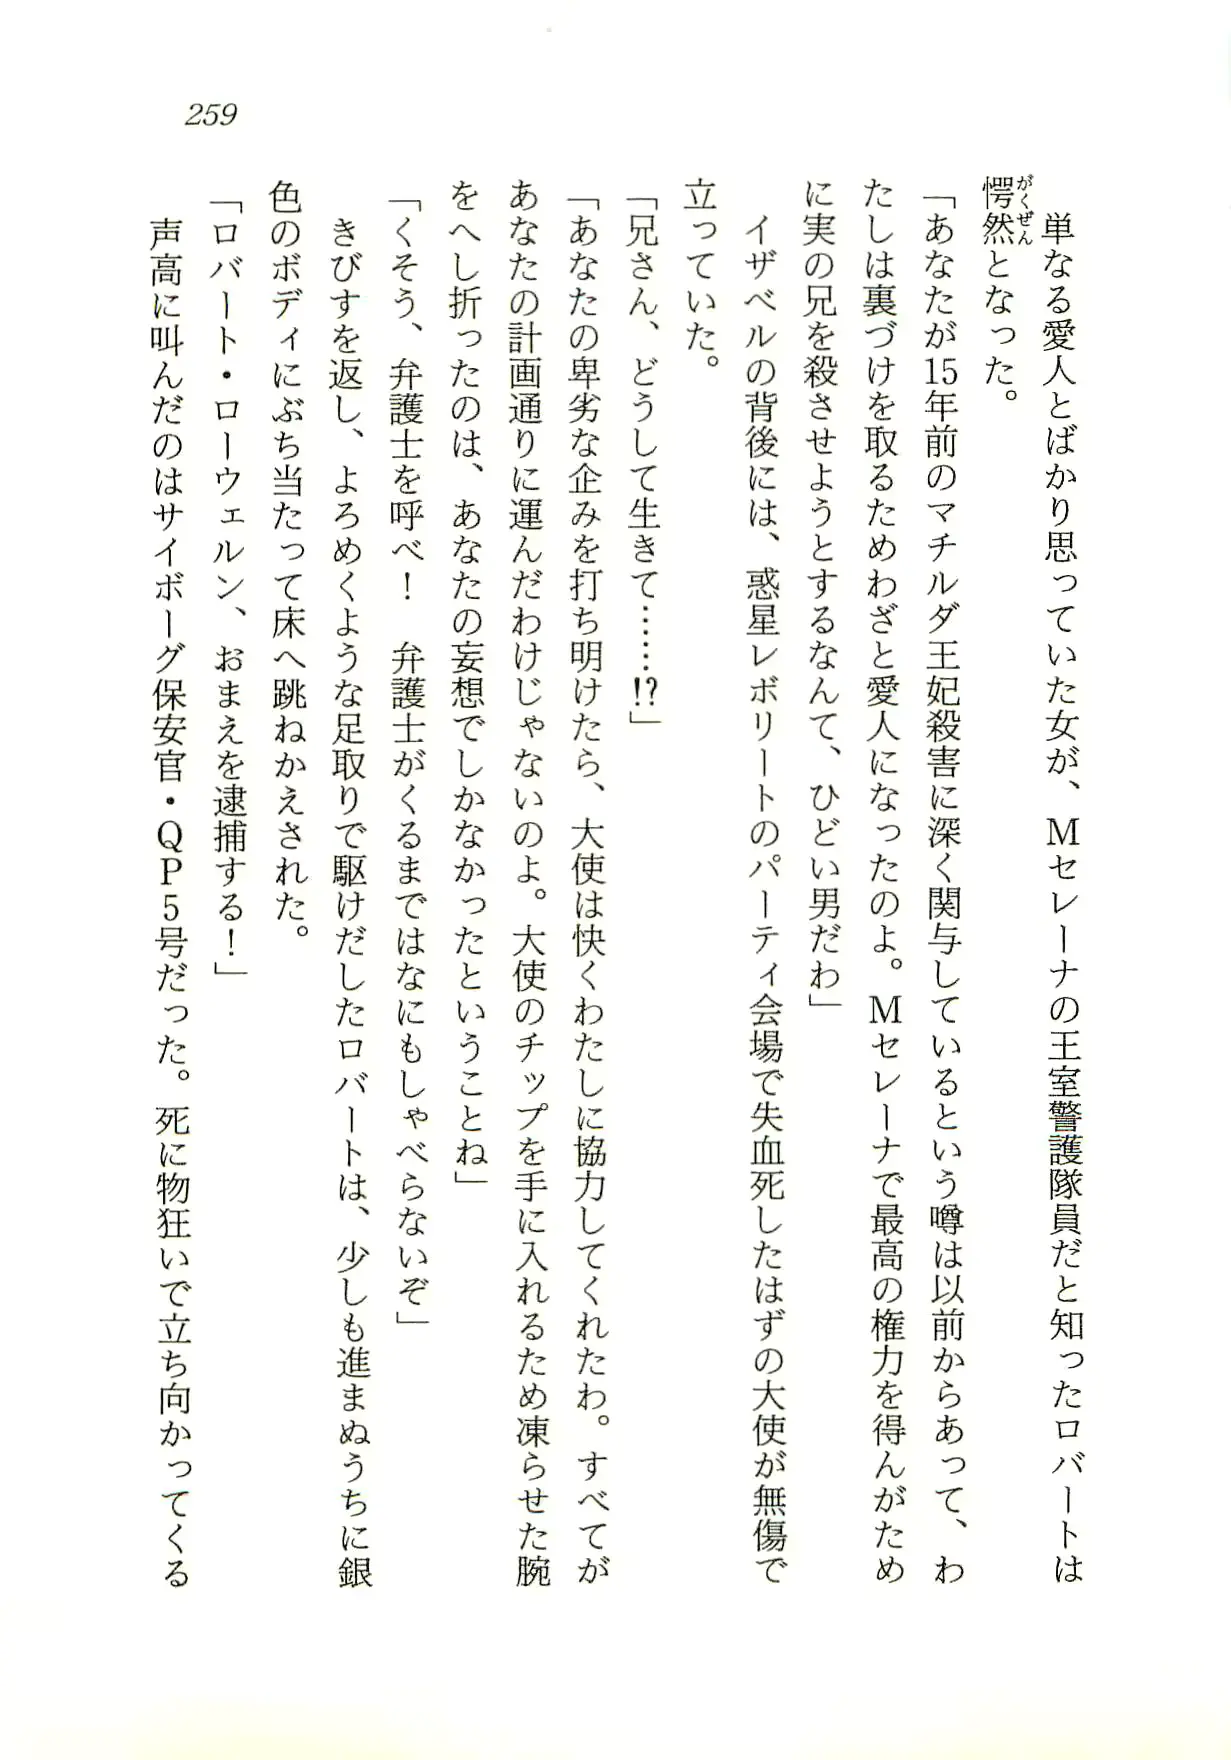 259
　単なる愛人とばかり思っていた女が、Mセレーナの王室警護隊員だと知ったロバートは
愕然となった。
がくぜん
「あなたが15年前のマチルダ王妃殺害に深く関与しているという噂は以前からあって、わ
たしは裏づけを取るためわざと愛人になったのよ。Mセレーナで最高の権力を得んがため
に実の兄を殺させようとするなんて、ひどい男だわ」
　イザベルの背後には、惑星レボリートのパーティ会場で失血死したはずの大使が無傷で
立っていた。
「兄さん、どうして生きて……!?」
「あなたの卑劣な企みを打ち明けたら、大使は快くわたしに協力してくれたわ。すべてが
あなたの計画通りに運んだわけじゃないのよ。大使のチップを手に入れるため凍らせた腕
をへし折ったのは、あなたの妄想でしかなかったということね」
「くそう、弁護士を呼べ！　弁護士がくるまではなにもしゃべらないぞ」
　きびすを返し、よろめくような足取りで駆けだしたロバートは、少しも進まぬうちに銀
色のボディにぶち当たって床へ跳ねかえされた。
「ロバート・ローウェルン、おまえを逮捕する！」
　声高に叫んだのはサイボーグ保安官・QP5号だった。死に物狂いで立ち向かってくる